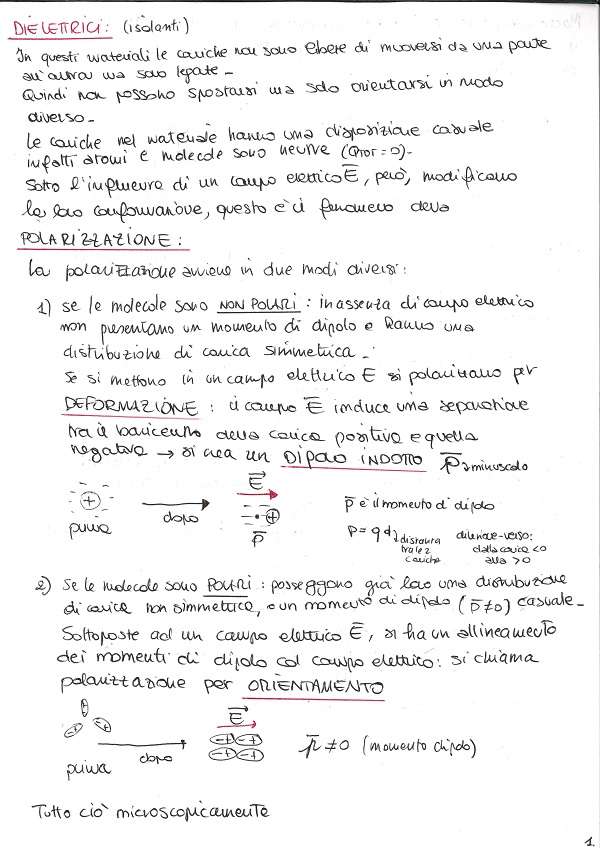 DIELETTRICI: (isolanti)
In questi materiali le cariche non sono libere di muoversi da una parte
all'altra ma sono legate-
Quindi non possono spostarsi ma solo orientarsi in modo
diverso-
Le cariche nel materiale hanno una disposizione casuale
infatti atomi e molecole sono neutre (QTOT=0)-
Sotto l'influenza di un campo elettrico E, però, modificano
la loro conformazione, questo è il fenomeno della
POLARIZZAZIONE:
La polarizzazione avviene in due modi diversi:
1) se le molecole sono NON POLARI: in assenza di campo elettrico
non presentano un momento di dipolo e hanno una
distribuzione di carica simmetrica-
Se si mettono in un campo elettrico E si polarizzano per
DEFORMAZIONE: il campo E induce una separazione
tra il baricentro della carica positiva e quella
negativa → si crea un DIPOLO INDOTTO p minuscolo
E
+
prima
dopo
- • +
p
p è il momento di dipolo
p = q d
distanza
tra le 2
cariche
direzione-verso:
dalla carica <0
alla >0
2) Se le molecole sono POLARI: posseggono già loro una distribuzione
di carica non simmetrica, e un momento di dipolo (p≠0) casuale-
Sottoposte ad un campo elettrico E, si ha un allineamento
dei momenti di dipolo col campo elettrico: si chiama
polarizzazione per ORIENTAMENTO
E
prima
dopo
-+ -+
-+ -+
p ≠0 (momento dipolo)
Tutto ciò microscopicamente
1.